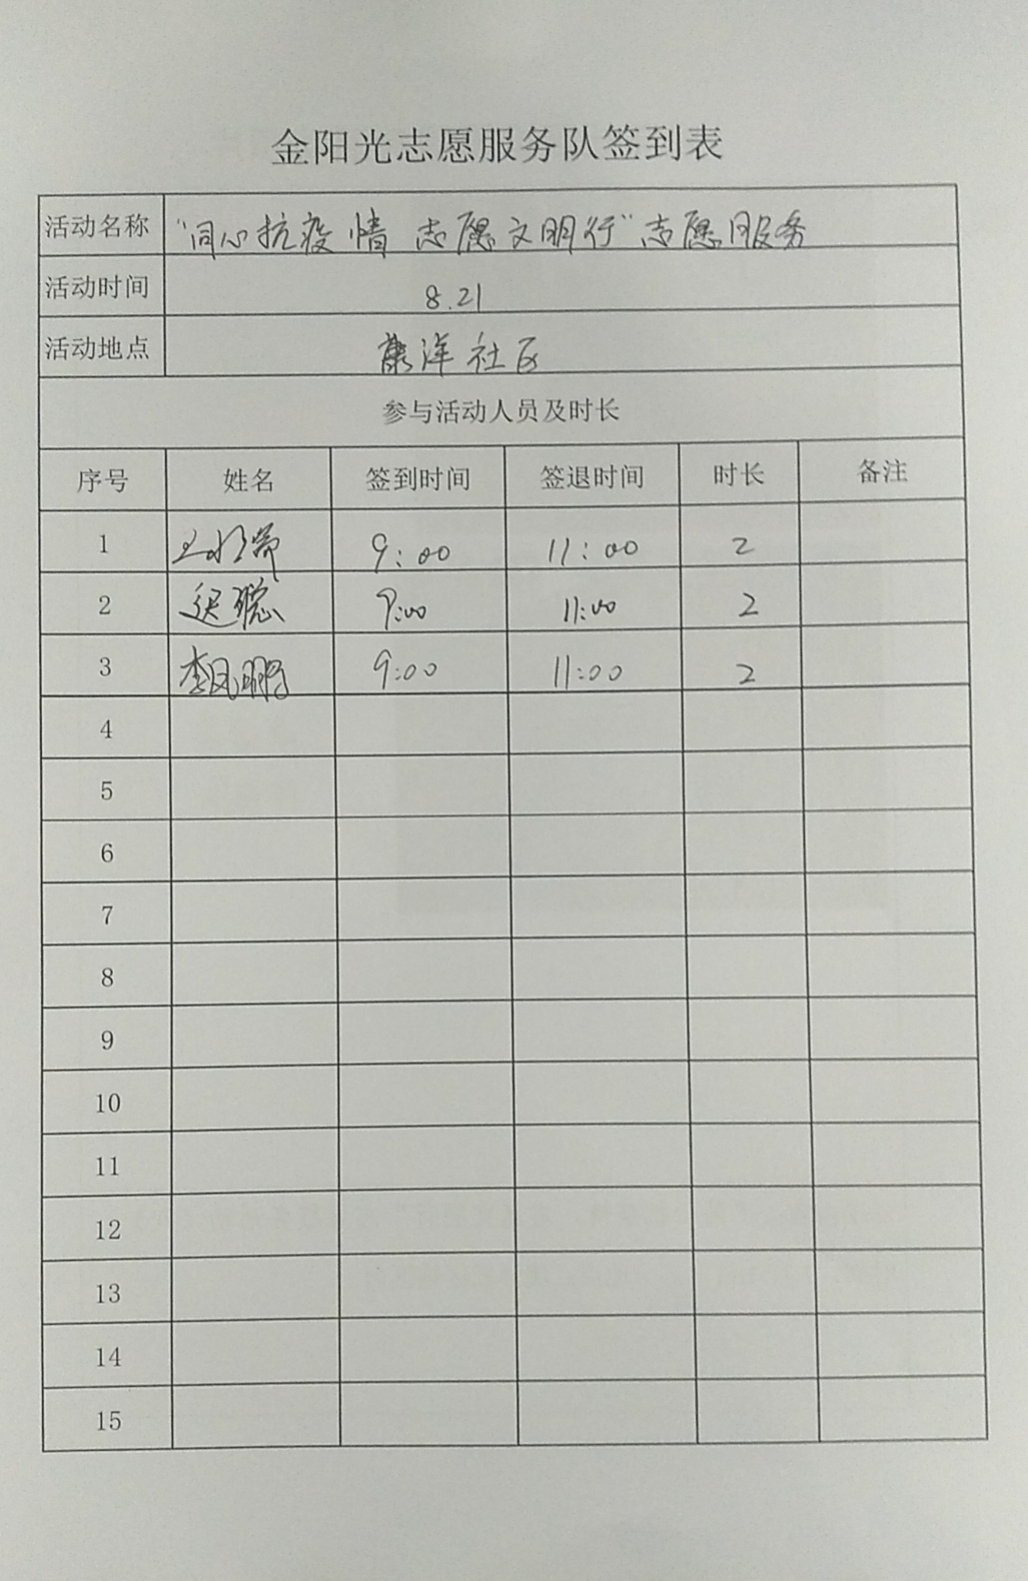 金阳光志愿服务队签到表
活动名称 “同心抗疫情 志愿文明行”志愿服务
活动时间 8.21
活动地点 康洋社区
参与活动人员及时长
序号 姓名 签到时间 签退时间 时长 备注
1 9:00 11:00 2
2 迟聪 9:00 11:00 2
3 李凤鹏 9:00 11:00 2
4
5
6
7
8
9
10
11
12
13
14
15